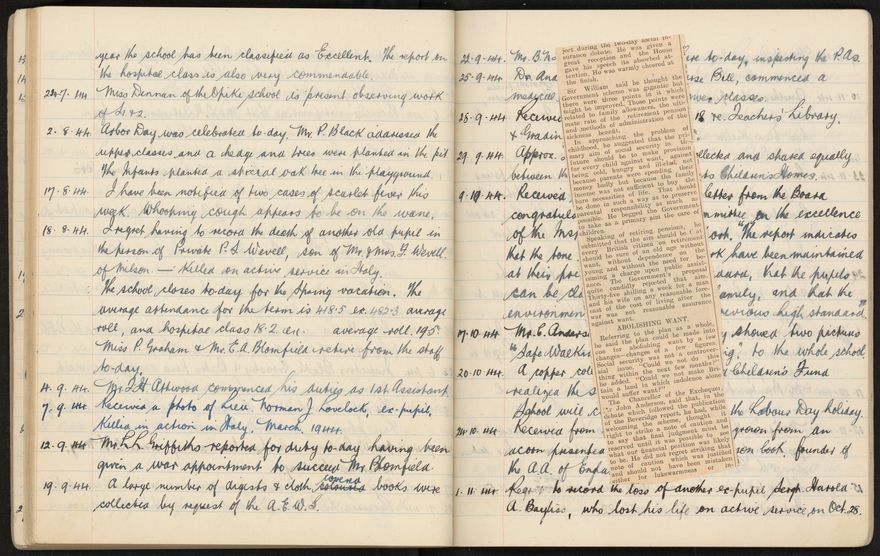 year the school has been classified as Excellent. The report on
the hospital class is also very commendable.
24-7. 44 Miss Denman of the Opiki school is present observing work
of
2. 8. 44. Arbor Day was celebrated to-day. Mr. P. Black addressed the
upper classes and a hedge and trees were planted in the pit
The Infants planted a special oak tree in the playground
17. 8. 44. I have been notified of two cases of scarlet fever this
week. Whooping cough appears to be on the wane.
18. 8. 44. I regret having to record the death of another old pupil in
the person of Private P. S. Wevell, son of Mr & Mrs. Wevell
of Nelson. — Killed on active service in Italy.
The school closes to-day for the Spring vacation. The
average attendance for the term is 418.5 ex. 482.3 average
roll, and hospital class 18.2 average roll. 19.5
Miss P. Graham & Mr. E. A. Blomfield retire from the staff
to-day.
4. 9. 44. Mr. Attwood commenced his duties as 1st Assistant
7. 9. 44. Received a photo of Lieu. Norman J. Lovelock, ex-pupil,
killed in action in Italy. March 1944.
12. 9. 44 Mr. L. L. Griffiths reported for duty to-day having been
given a war appointment to succeed Mr. Blomfield.
19. 9. 44. A large number of digests & cloth covered books were
collected by request of the A.E.W.S.
22. 9. 44. Mr. B. re to-day, inspecting the P.As.
25-9. 44 Dr. And se Bell, commenced a
medical classes.
25. 9. 44 Receive 18 re. Teachers' Library,
& Gradin
29. 9. 44. Approx. llected and shared equally
between th to Children's Homes.
9. 10. 44. Received letter from the Board
congratula mmittee on the excellence
of the Insp ort. "The report indicates
that the tone rk have been maintained
at their pre dard, that the pupils
can be cla and that the
environmen evious high standard."
17. 10. 44. Mr. E. Anderso showed two pictures
"Safe Walkin g", to the whole school
20. 10. 44 A copper coll Children's Fund
realized the s
School will c the Labour Day holiday.
24. 10. 44. Received from grown from an
acorn presented son book, founder of
the A.A. of Engla
1. 11. 44. Regret to record the loss of another ex-pupil Sergt. Harold
A. Bayliss, who lost his life on active service on Oct. 28.
ject during the two-day social in-
surance debate. He was given a
great reception and the House
gave his speech its absorbed at-
tention. He was warmly cheered at
the finish.
Sir William said he thought the
Government scheme was gigantic but
there were three points in which it
might be improved. Those points were
related to family allowances, the ulti-
mate rate of the retirement pension
and methods of administration of the
sickness benefit.
In approaching the problem of
want, he suggested that the pri-
mary aim of social security in the
future should be to make provision
for every child against want, against
being cold, hungry and ill-clad, not
because parents were spending their
money badly but because the family
income was not sufficient to buy the
bare necessities of life. That should
be done in such a way as to preserve
parental responsibility as much as
possible. He begged the Government
to take as a primary aim the care of
children.
Speaking of retiring pensions, he
submitted that the aim should be that
every British citizen on retirement
should be sure of an old age without
want, without dependence on the
young and without the need for be-
coming a charge upon public assist-
ance. The Government's proposals
quite candidly rejected that aim.
Thirty-five shilling a week for a man
and his wife on any reasonable fore-
cast of the cost of living after the
war was not reasonable assurance
against want.
ABOLISHING WANT.
Referring to the plan as a whole,
he said the plan could be made into
one for abolishing want by a few
changes—changes of a few figures.
Abolishing want was not a controver-
sial issue. "Could we not do the
thing within the next few months?"
he added. "Could we not make Bri-
tain a land in which indolence alone
will suffer want?"
The Chancellor of the Exchequer,
Sir John Anderson, said that, in the
debate which followed the publication
of the Beveridge report, he had, while
welcoming the scheme, thought it
right to strike a note of caution and
to say that final judgment must be
withheld until it was possible to see
what our financial position was likely
to be. He did not regret striking that
note of caution which was justified
and should not have been mistaken
either for lukewarmness or